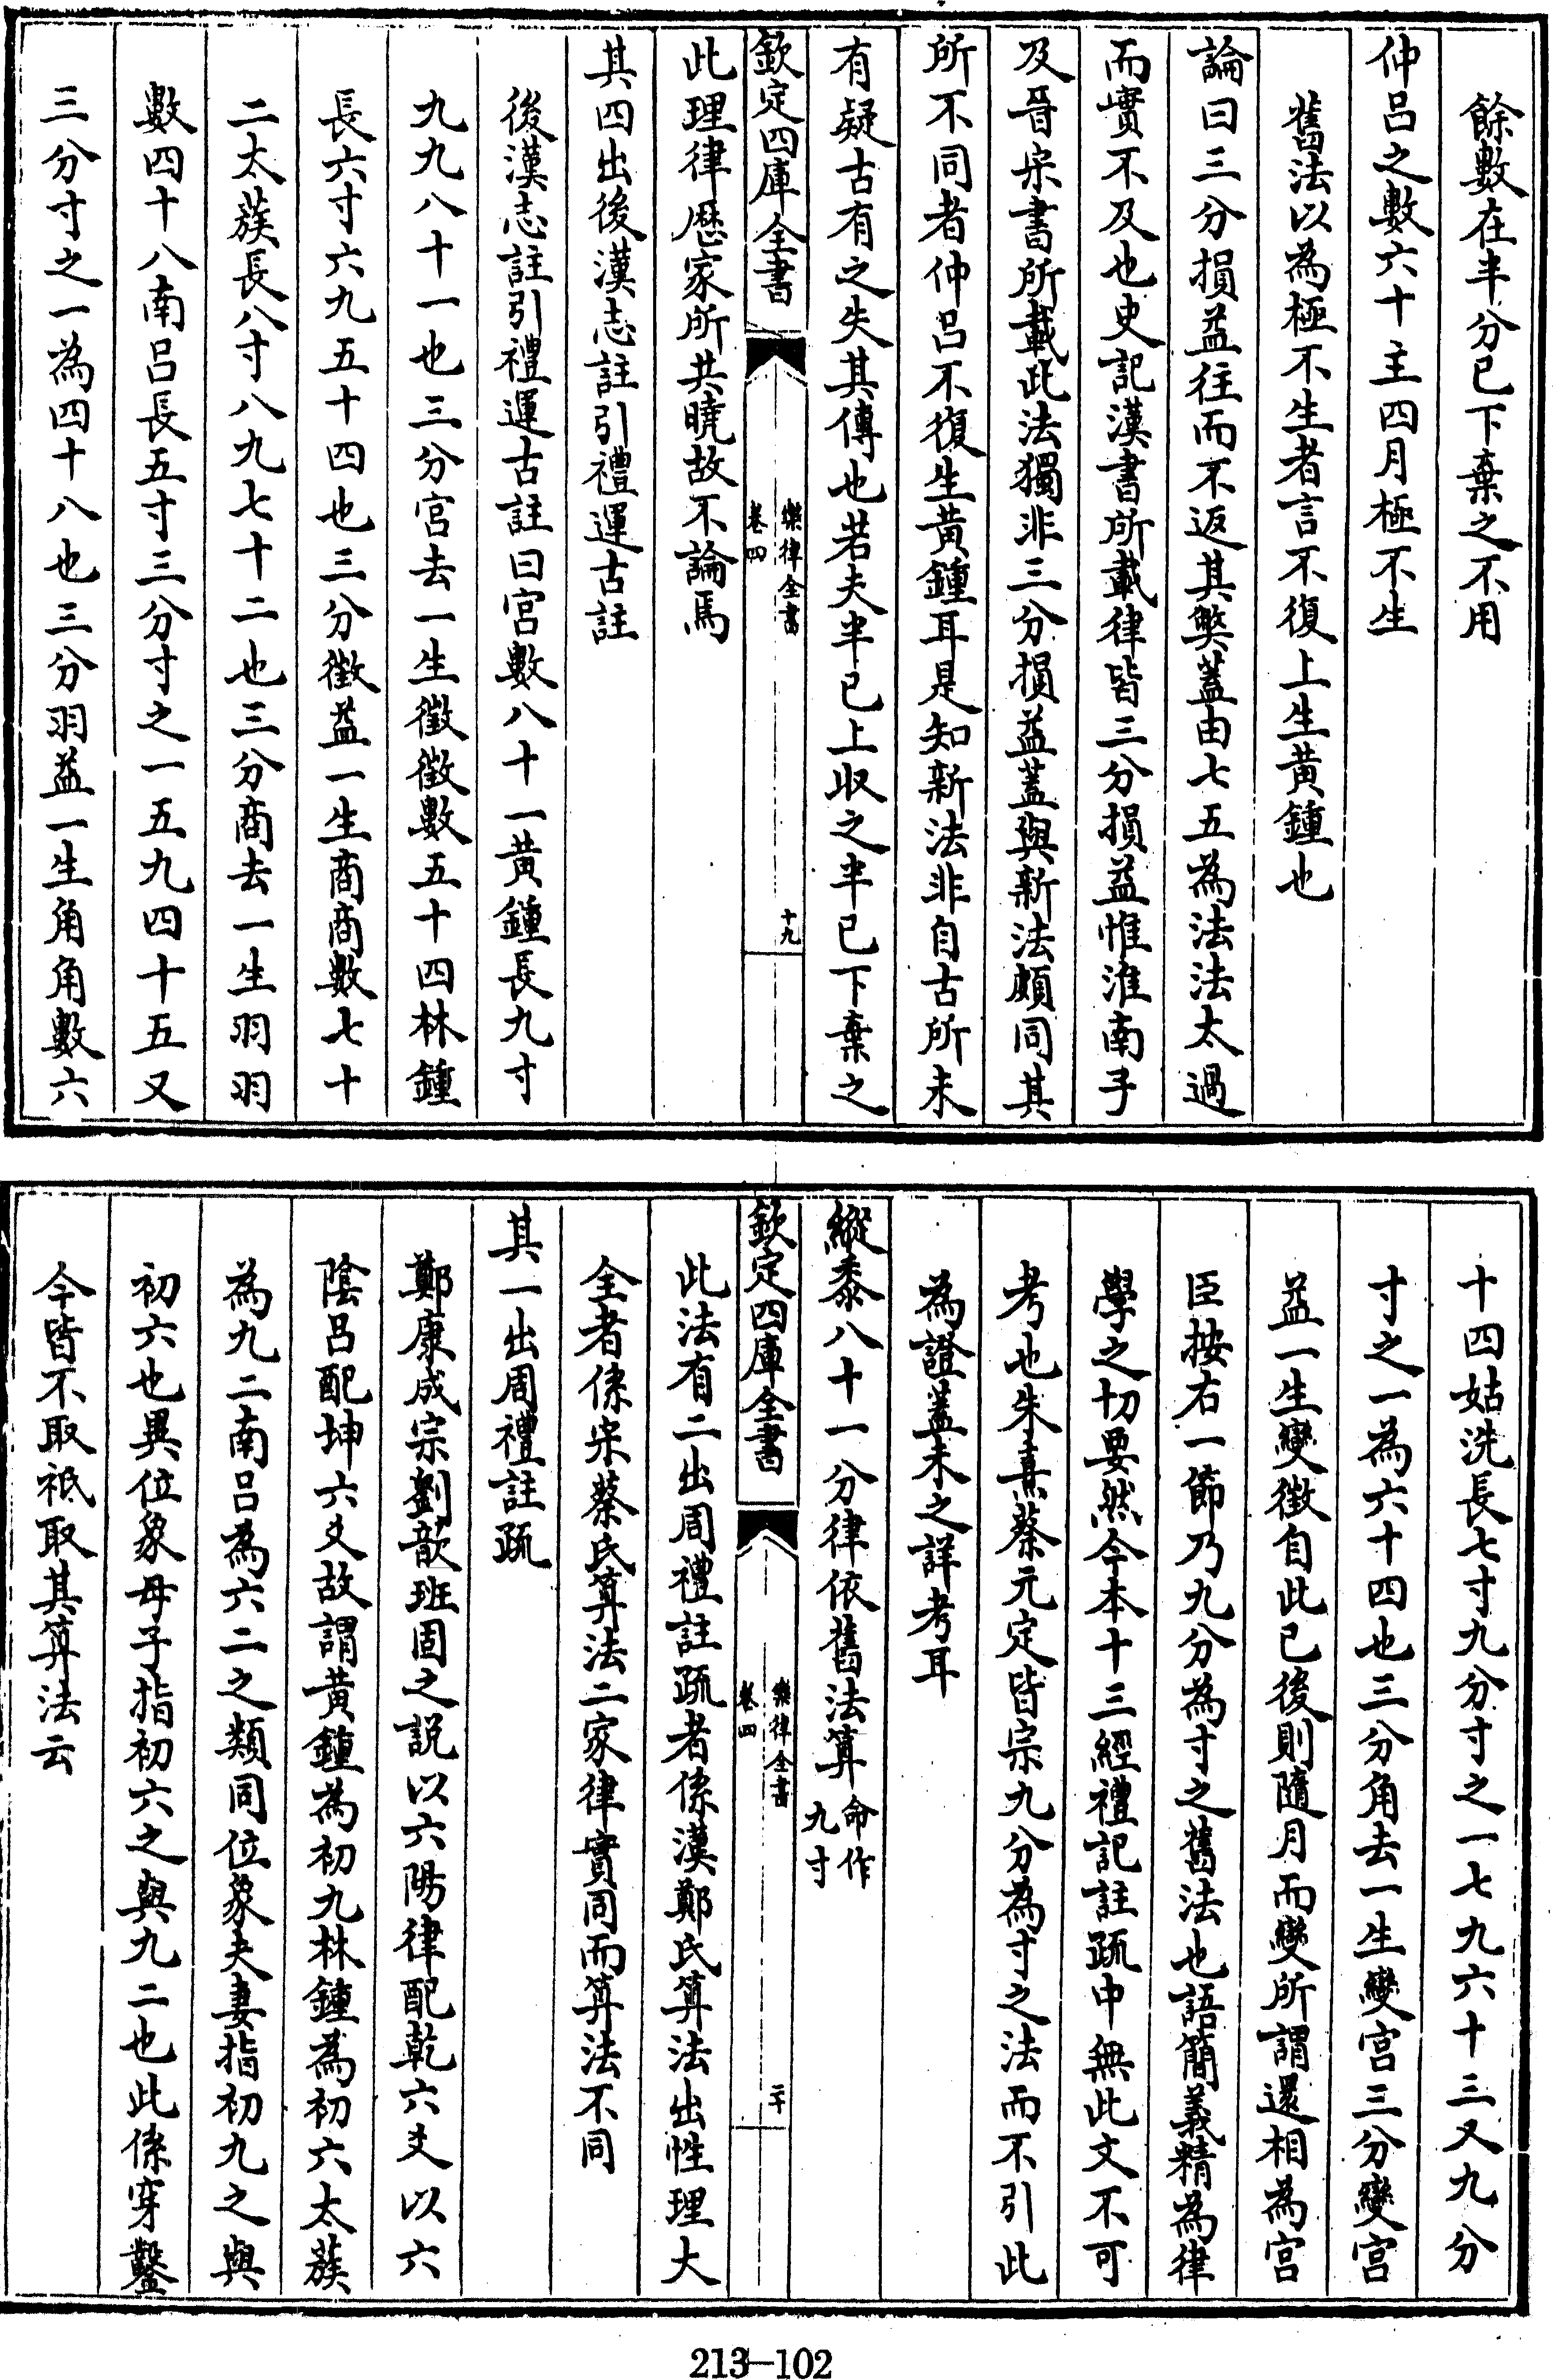 餘數在半分已下棄之不用
仲呂之數六十主四月極不生
舊法以為極不生者言不復上生黃鍾也
論曰三分損益往而不返其弊蓋由七五為法法太過
而實不及也史記漢書所載律皆三分損益惟淮南子
及晉宋書所載此法獨非三分損益蓋與新法頗同其
所不同者仲呂不復生黃鍾耳是知新法非自古所未
有疑古有之失其傳也若夫半已上収之半已下棄之
欽定四庫全書
樂律全書
卷四
十九
此理律歴家所共曉故不論焉
其四出後漢志註引禮運古註
後漢志註引禮運古註曰宮數八十一黃鍾長九寸
九九八十一也三分宮去一生徵徵數五十四林鍾
長六寸六九五十四也三分徵益一生商商數七十
二太蔟長八寸八九七十二也三分商去一生羽羽
數四十八南呂長五寸三分寸之一五九四十五又
三分寸之一為四十八也三分羽益一生角角數六
十四姑洗長七寸九分寸之一七九六十三又九分
寸之一為六十四也三分角去一生變宮三分變宮
益一生變徵自此已後則隨月而變所謂還相為宮
臣按右一節乃九分為寸之舊法也語簡義精為律
學之切要然今本十三經禮記註疏中無此文不可
考也朱熹蔡元定皆宗九分為寸之法而不引此
為證蓋未之詳考耳
縱黍八十一分律依舊法算命作九寸
欽定四庫全書
樂律全書
卷四
二十
此法有二出周禮註疏者係漢鄭氏算法出性理大
全者係宋蔡氏算法二家律實同而算法不同
其一出周禮註疏
鄭康成宗劉歆班固之説以六陽律配乾六爻以六
陰呂配坤六爻故謂黃鍾為初九林鍾為初六太蔟
為九二南呂為六二之類同位象夫妻指初九之與
初六也異位象母子指初六之與九二也此係穿鑿
今皆不取袛取其算法云
213-102